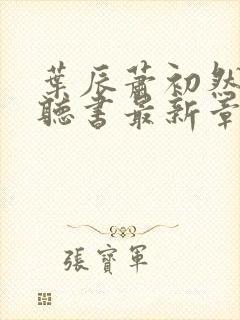 葉辰蕭初然
聽書最新章
張寶軍